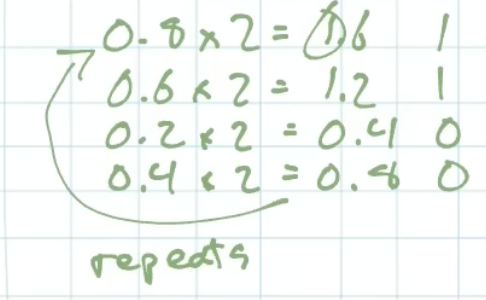 0.8 x 2 = 1.6 1
0.6 x 2 = 1.2 1
0.2 x 2 = 0.4 0
0.4 x 2 = 0.8 0
repeats